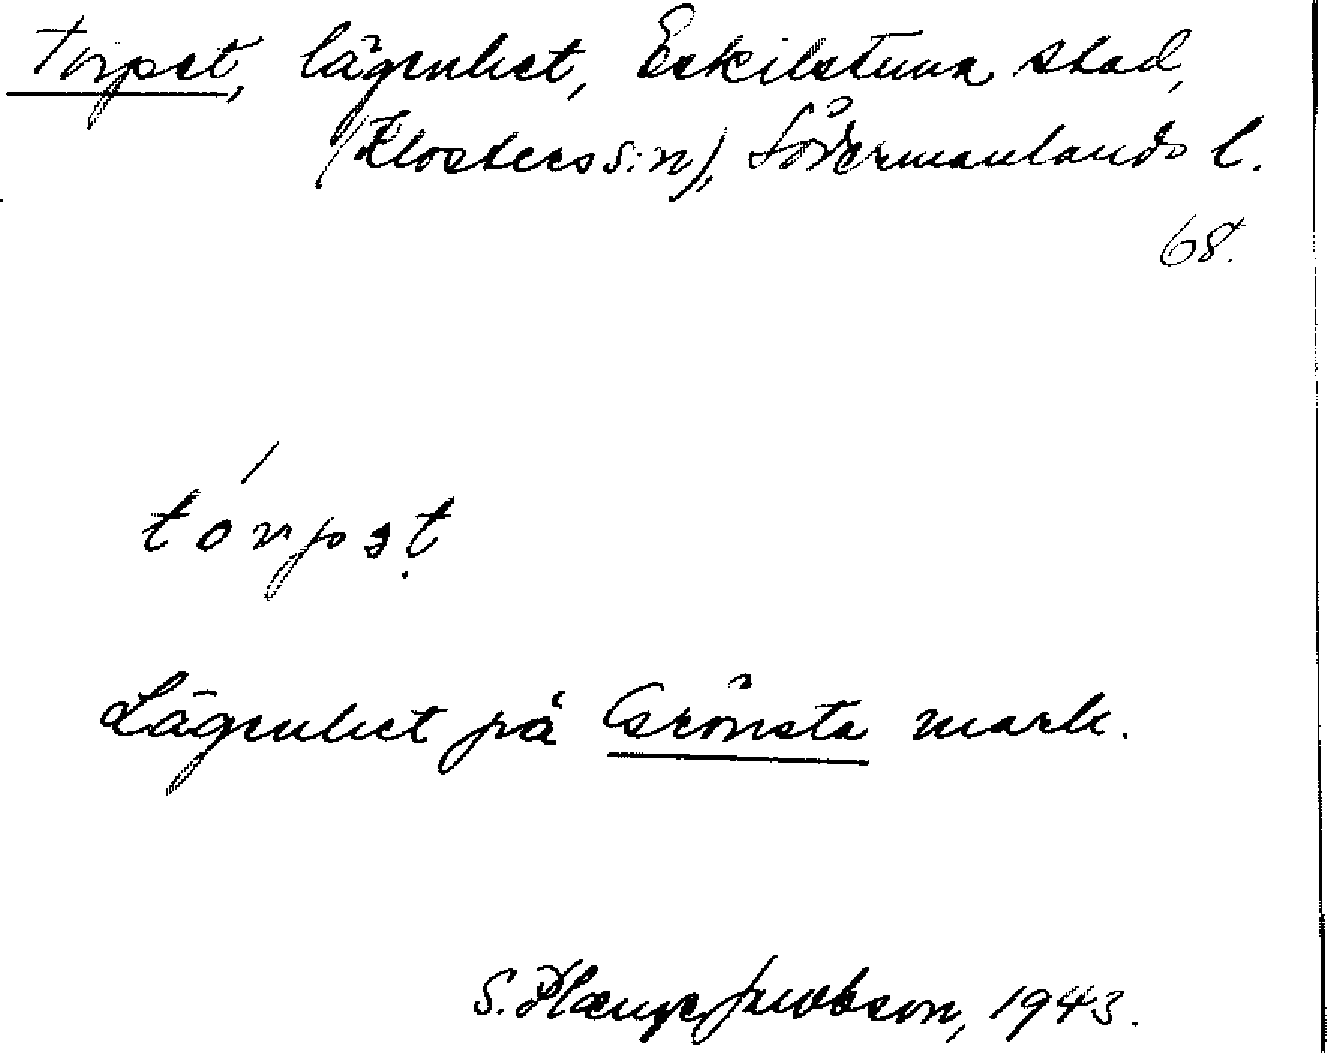 Torpet, lägenhet, Eskilstuna stad,
(Klosters s:n), Södermanlands l.
68.
tórpət
Lägenhet på Grönsta mark.
S. Jacobson, 1943.